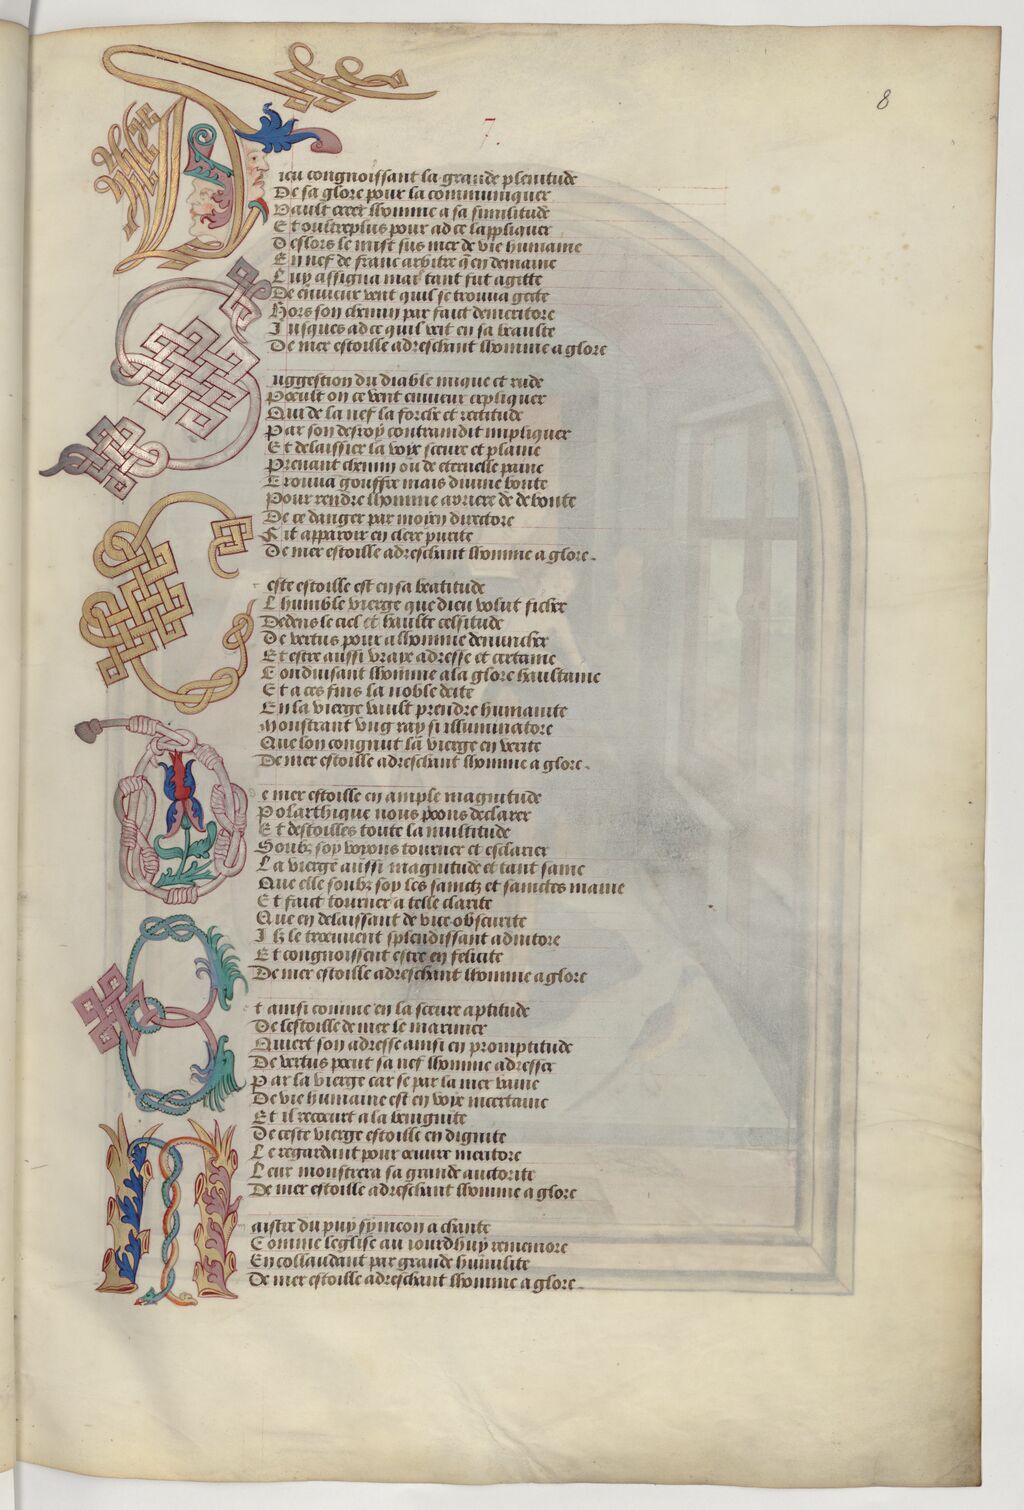 8
7.
Dieu congnoissant la grande plenitude
De sa glore pour la communiquer
Vault creer lhomme a sa similitude
Et oultreplus pour ad ce lappliquer
Deslors le mist sus mer de vie humaine
En nef de franc arbitre q̄ en demaine
Luy assigna mais tant fut agitte
De envieux vent quil se trouva gecte
Hors son chemin par faict demeritore
Jusques ad ce quil veit en sa beaulte
De mer estoille adreschant lhomme a glore
Suggestion du diable inique et rude
Pœult on ce vent envieux expliquer
Qui de la nef la force et rectitude
Par son desroy contraindit impliquer
Et delaissier la voye seure et plaine
Prenant chemin ou de eternelle paine
Trouva gouffre mais divine bonte
Pour rendre lhomme arriere de deboute
De ce danger par moien directore
Fit apparoir en clere purite
De mer estoille adreschant lhomme a glore.
Ceste estoille est en sa beatitude
Lhumble vierge que dieu volut ficher
Dedens le ciel et haulte celsitude
De vertus pour a lhomme denuncher
Et estre aussi vraye adresse et certaine
Conduisant lhomme a la glore haultaine
Et a ces fins la noble deite
En la vierge vault prendre humanite
Monstrant ung ray si illuminatore
Que lon congnut la vierge en verite
De mer estoille adreschant lhomme a glore.
De mer estoille en ample magnitude
Pol arthique nous poons declarer
Et destoilles toute la multitude
Soubz soy voyons tourner et esclarier
La vierge aussi magnitude et tant saine
Que elle soubz soy les sainctz et sainctes maine
Et faict tourner a telle clarite
Que en delaissant de vice obscurite
Ilz le troeuvent splendissant adiutore
Et congnoissent estre en felicite
De mer estoille adreschant lhomme a glore
Et ainsi comme en la sceure aptitude
De lestoille de mer le marinier
Quiert son adresse ainsi en promptitude
De vertus pœut sa nef lhomme adresser
Par la vierge car se par la mer vaine
De vie humaine est en voye incertaine
Et il recœurt a la benignite
De ceste vierge estoille en dignite
Le regardant pour œuvre meritore
Leur monstrera sa grande auctorite
De mer estoille adreschant lhomme a glore
Maistre du puy symeon a chante
Comme leglise au iourdhuy rememore
En collaudant par grande humilite
De mer estoille adreschant lhomme a glore.